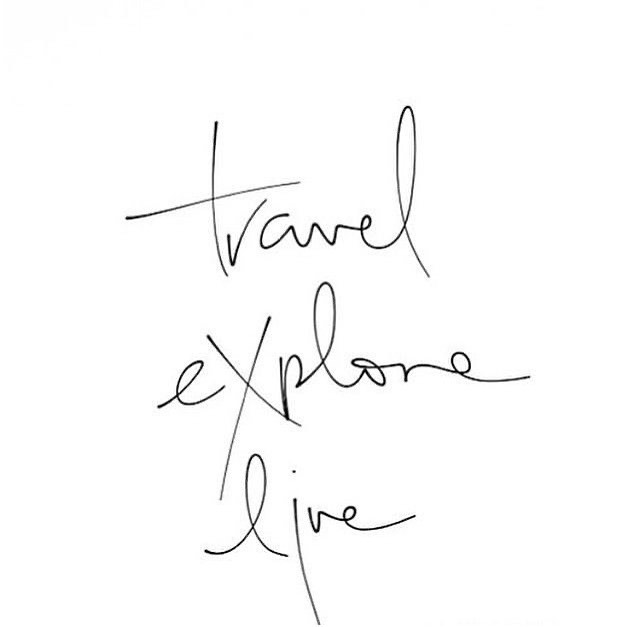 travel
explore
live